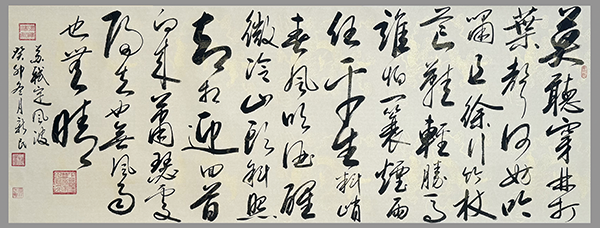 莫聽穿林打
葉聲何妨吟
嘯且徐行竹杖
芒鞋輕勝馬
誰怕一蓑煙雨
任平生料峭
春風吹酒醒
微冷山頭斜照
卻相迎回首
向來蕭瑟處
歸去也無風雨
也無晴
蘇軾定風波
癸卯冬月